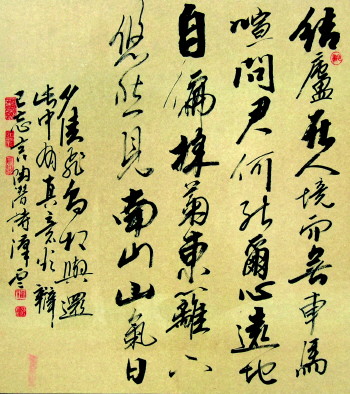 結廬在人境而無車馬
喧問君何能爾心遠地
自偏採菊東籬下
悠然見南山山氣日
夕佳飛鳥相與還
此中有真意欲辯
已忘言陶潛詩